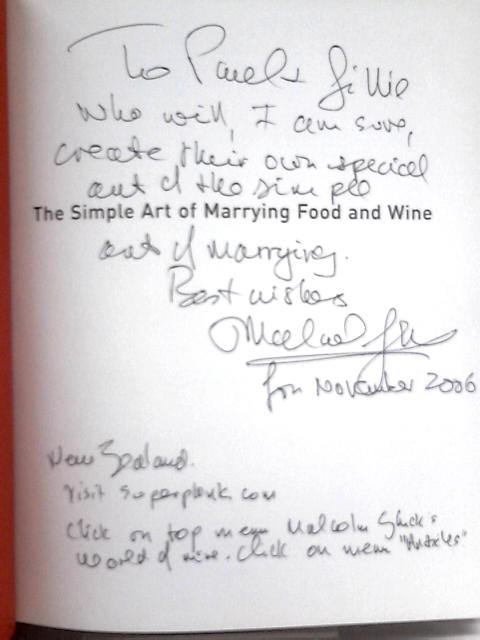 To Paul & Gillie
who will, I am sure,
create their own special
out of the simple
The Simple Art of Marrying Food and Wine
art of marrying.
Best wishes
Malcolm Gluck
for November 2006
New Zealand.
Visit superplonk com
Click on top menu Malcolm Gluck's
World of wine. Click on menu "Articles"